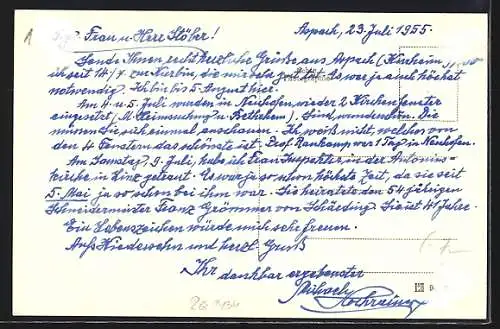 1
Aspach, 23. Juli 1955.
Frau u. Herr Stöber!
Sende Ihnen recht herzliche Grüße aus Aspach (Kurheim), wo
ich seit 14./7. zur Kur bin, die mir sehr gut tut. Es war ja auch höchst
notwendig. Ich bin bis 5. August hier.
Am 4. u. 5. Juli wurden in Neuhofen wieder 2 Kirchenfenster
eingesetzt (M. Heimsuchung u. Bethlehem). Sind wunderschön. Die
müssen Sie sich einmal anschauen. Ich weiß nicht, welches von
den 4 Fenstern das schönste ist. Prof. Raukamp war 1 Tag in Neuhofen.
Am Samstag, 9. Juli, habe ich Frau Inspektor in der Antonius-
kirche in Linz getraut. Es war ja schon höchste Zeit, da sie seit
5. Mai ja so schon bei ihm war. Sie heiratete den 54 jährigen
Schneidermeister Franz Grömmer von Schärding. Sie ist 41 Jahre.
Ein Lebenszeichen würde mich sehr freuen.
Auf Wiedersehn und herzl. Gruß
Ihr dankbar ergebenster